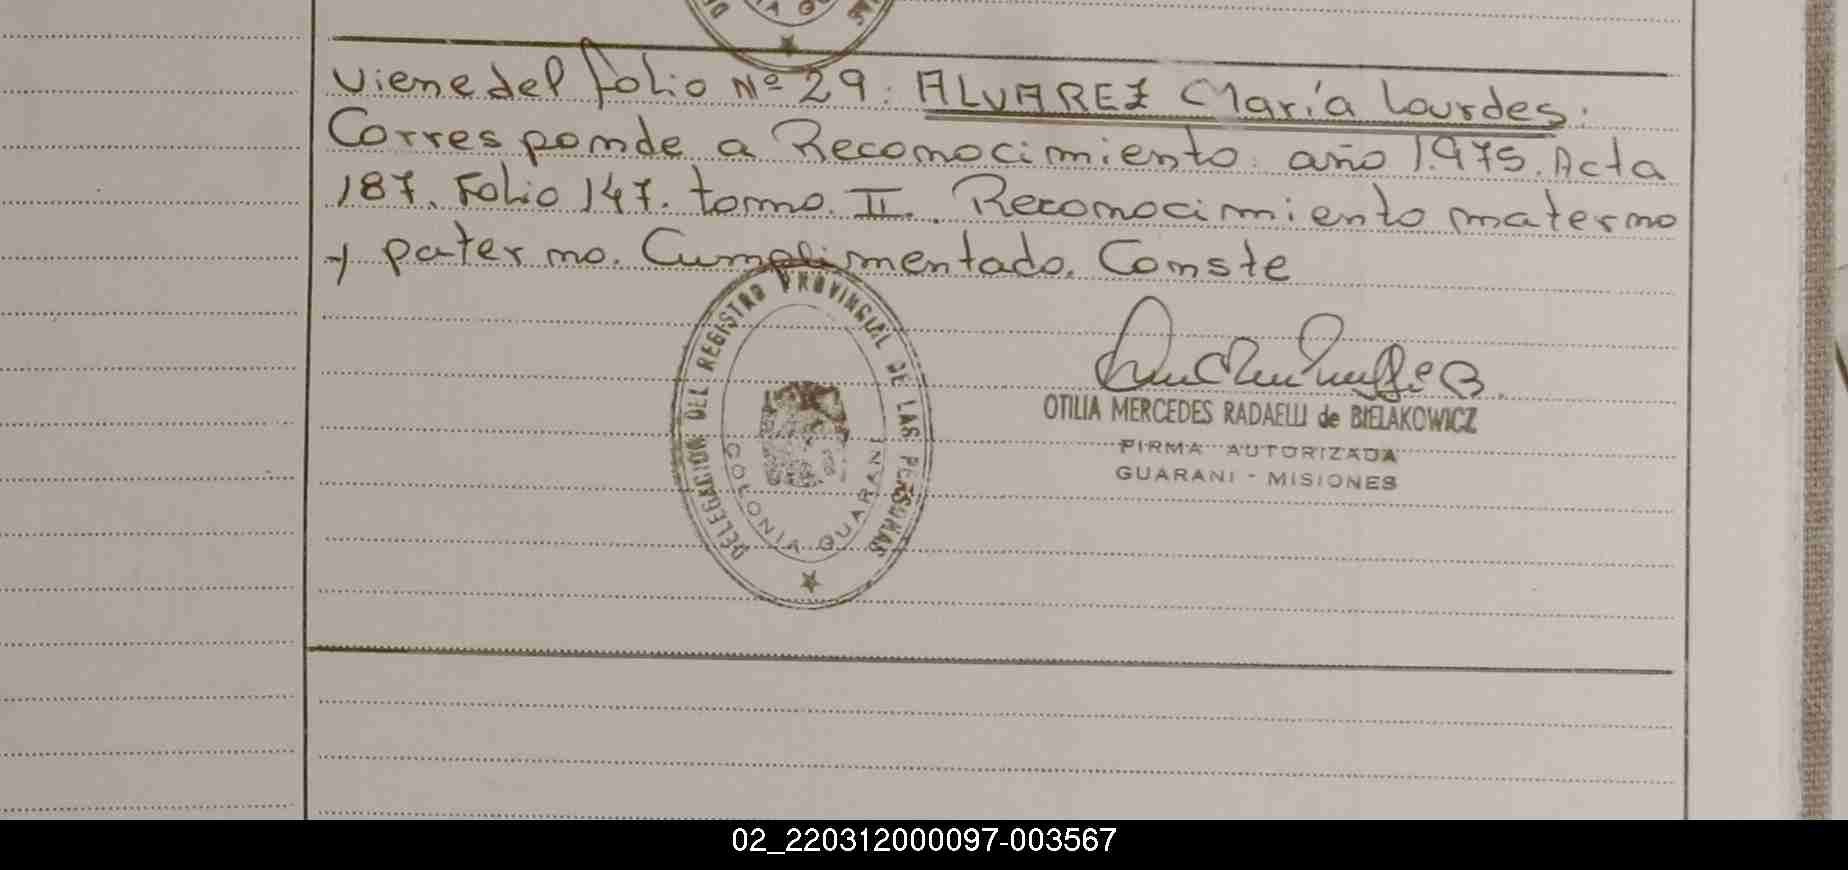 Viene del folio Nº 29: ALVAREZ María Lourdes:
Corresponde a Reconocimiento: año 1.975. Acta
187. Folio 147. tomo. II. Reconocimiento materno
y paterno. Cumplimentado. Conste
DELEGACION DEL REGISTRO PROVINCIAL DE LAS PERSONAS
COLONIA GUARANI
OTILIA MERCEDES RADAELLI de BIELAKOWICZ
FIRMA AUTORIZADA
GUARANI - MISIONES
02_220312000097-003567